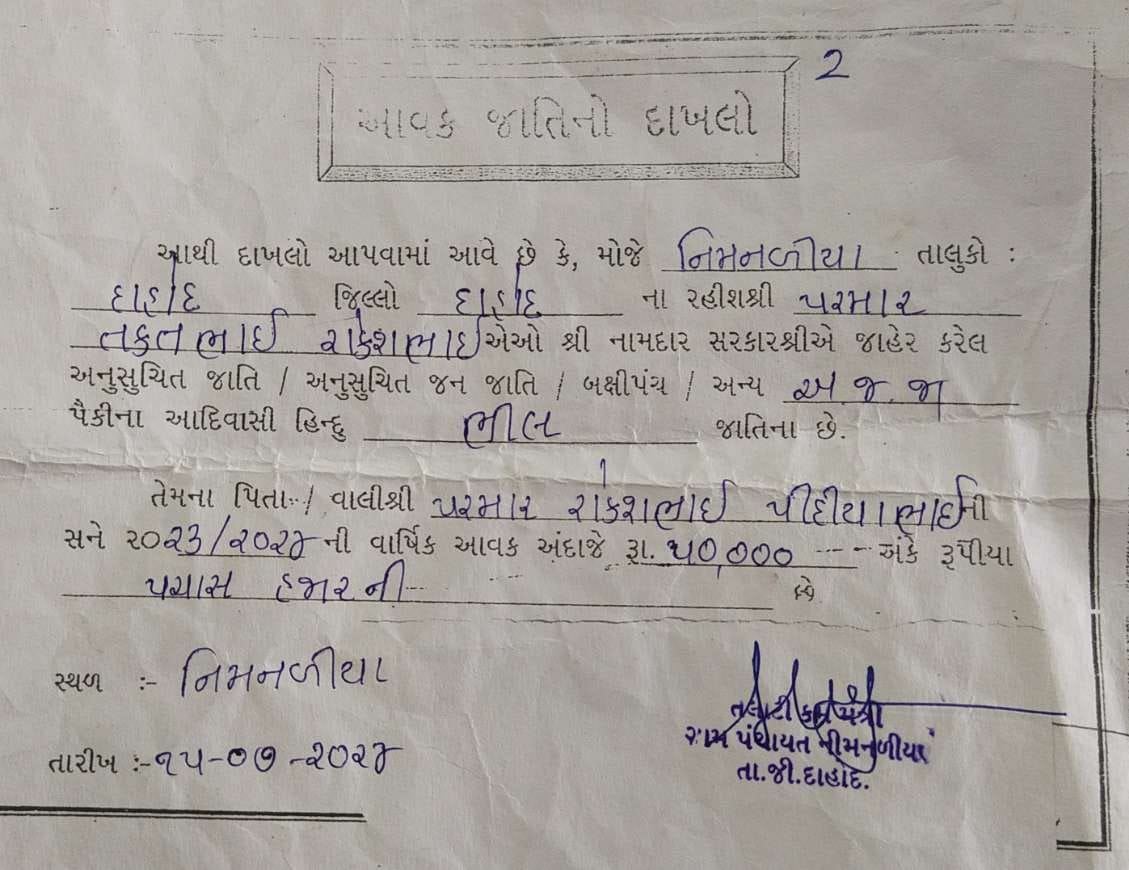 2
આવક જાતિનો દાખલો
આથી દાખલો આપવામાં આવે છે કે, મોજે નિમનળીયા તાલુકો :
દાહોદ જિલ્લો દાહોદ ના રહીશશ્રી પરમાર
તકતભાઈ રાકેશભાઈ એઓ શ્રી નામદાર સરકારશ્રીએ જાહેર કરેલ
અનુસુચિત જાતિ / અનુસુચિત જન જાતિ / બક્ષીપંચ / અન્ય અ.જ.જા
પૈકીના આદિવાસી હિન્દુ ભીલ જાતિના છે.
તેમના પિતા / વાલીશ્રી પરમાર રાંકેશભાઈ પીદીયાભાઈની
સને ૨૦૨૩/૨૦૨૪ ની વાર્ષિક આવક અંદાજે રૂા. ૫૦,૦૦૦ --- - અંકે રૂપીયા
પચાસ હજારની છે
સ્થળ :- નિમનળીયા
તારીખ :- ૧૫-૦૭-૨૦૨૪
તલાટી કમ મંત્રી
ગ્રામ પંચાયત નીમનળીયા
તા.જી.દાહોદ.